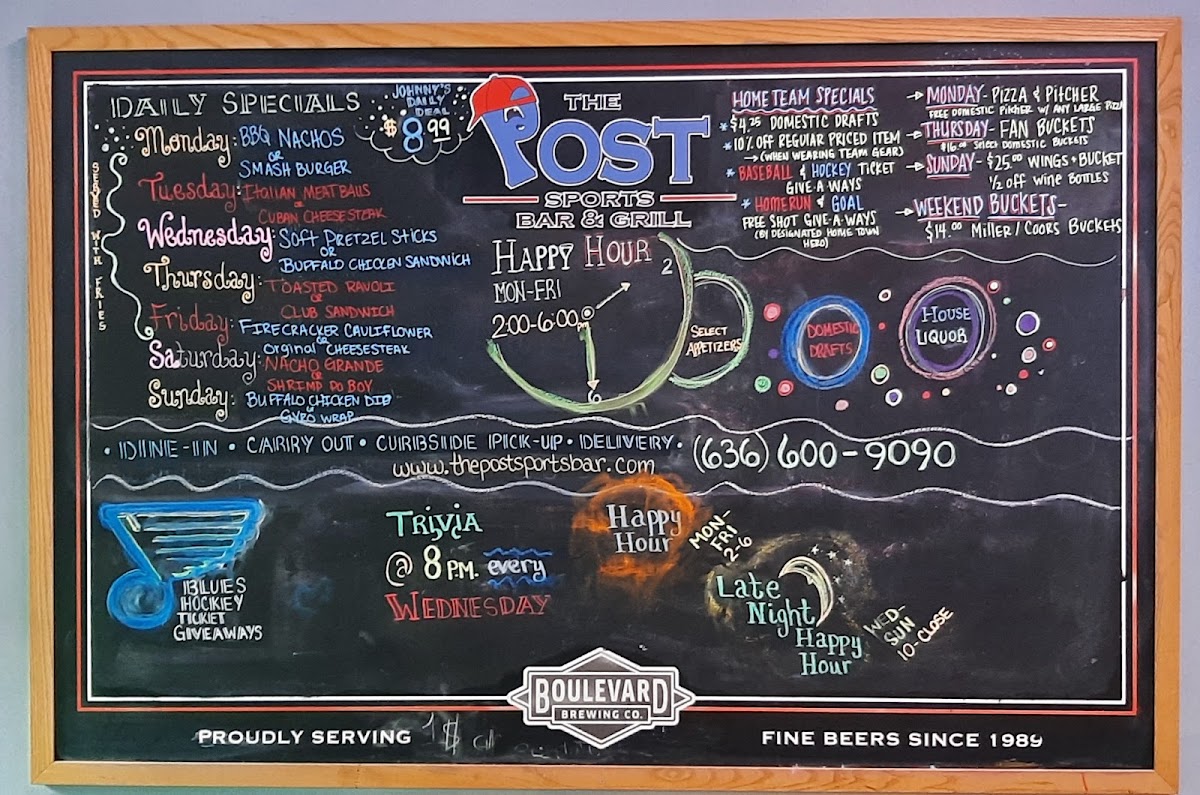 DAILY SPECIALS
JOHNNY'S
DAILY
DEAL
$8.99
SERVED WITH FRIES
Monday: BBQ NACHOS
OR
SMASH BURGER
Tuesday: ITALIAN MEATBALLS
OR
CUBAN CHEESESTEAK
Wednesday: SOFT PRETZEL STICKS
OR
BUFFALO CHICKEN SANDWICH
Thursday: TOASTED RAVOLI
OR
CLUB SANDWICH
Friday: FIRECRACKER CAULIFLOWER
OR
Orginal CHEESESTEAK
Saturday: NACHO GRANDE
OR
SHRIMP PO BOY
Sunday: BUFFALO CHICKEN DIP
or
GYRO WRAP
THE
POST
SPORTS
BAR & GRILL
HAPPY HOUR
MON-FRI
2:00-6:00pm
2
6
SELECT
APPETIZERS
DOMESTIC
DRAFTS
HOUSE
LIQUOR
HOME TEAM SPECIALS
* $4.25 DOMESTIC DRAFTS
* 10% OFF REGULAR PRICED ITEM
→ (WHEN WEARING TEAM GEAR)
* BASEBALL & HOCKEY TICKET
GIVE-A-WAYS
* HOMERUN & GOAL
FREE SHOT GIVE-A-WAYS
(BY DESIGNATED HOME TOWN
HERO)
→ MONDAY- PIZZA & PITCHER
FREE DOMESTIC PITCHER W/ ANY LARGE PIZZA
→ THURSDAY- FAN BUCKETS
$16.00 Select DOMESTIC BUCKETS
→ SUNDAY- $25.00 WINGS + BUCKET
1/2 OFF WINE BOTTLES
→ WEEKEND BUCKETS-
$14.00 MILLER/COORS BUCKETS
• DINE-IN • CARRY OUT • CURBSIDE PICK-UP • DELIVERY • (636) 600-9090
www.thepostsportsbar.com
BLUES
HOCKEY
TICKET
GIVEAWAYS
TRIVIA
@ 8 P.M. every
WEDNESDAY
Happy
Hour
MON-
FRI
2-6
Late
Night
Happy
Hour
WED-
SUN
10-CLOSE
BOULEVARD
BREWING CO.
PROUDLY SERVING
FINE BEERS SINCE 1989